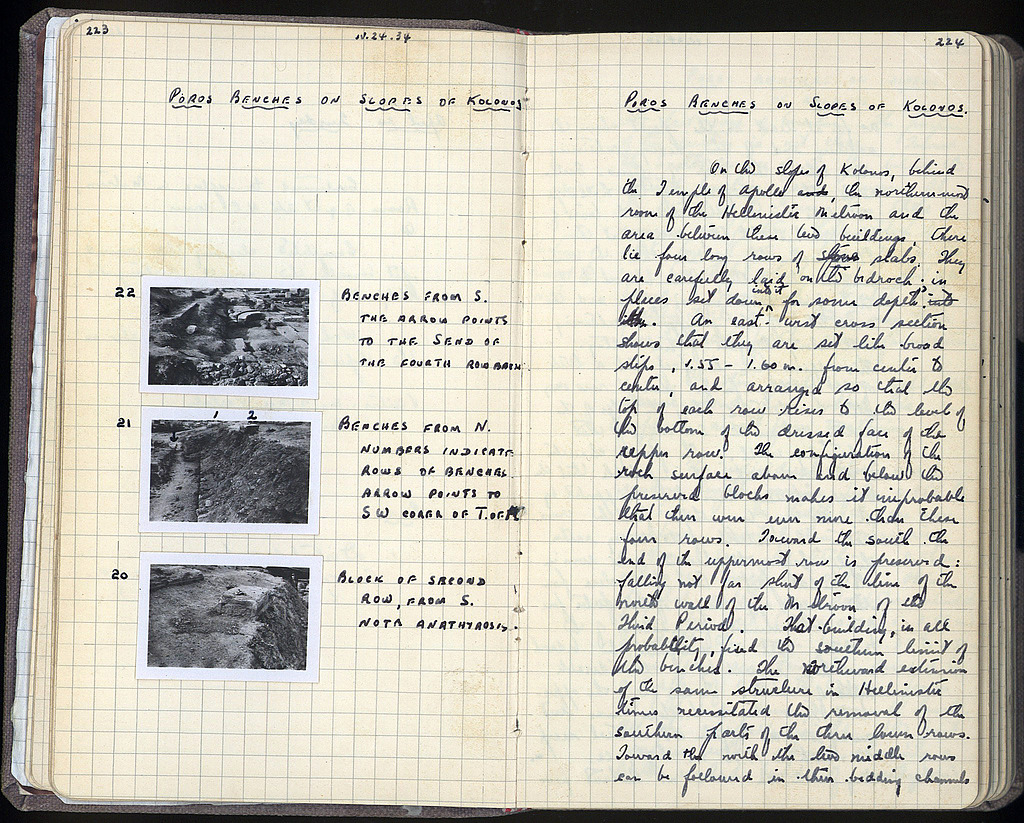 223
IV.24.34
POROS BENCHES ON SLOPES OF KOLONOS
22
BENCHES FROM S.
THE ARROW POINTS
TO THE S END OF
THE FOURTH ROW BACK
21
1 2
BENCHES FROM N.
NUMBERS INDICATE
ROWS OF BENCHES
ARROW POINTS TO
SW CORER OF T. OF
20
BLOCK OF SECOND
ROW, FROM S.
NOTE ANATHYROSIS.
224
POROS BENCHES ON SLOPES OF KOLONOS.
On the slopes of Kolonos, behind
the Temple of Apollo and, the northernmost
room of the Hellenistic Metroon and the
area between these two buildings, there
lie four long rows of stone slabs. They
are carefully laid on the bedrock in
places set down into it for some depth
An east-west cross section
shows that they are set like broad
steps, 1.55 - 1.60 m. from center to
center, and arranged so that the
top of each row rises to the level of
the bottom of the dressed face of the
upper row. The configuration of the
rock surface above and below the
preserved blocks makes it improbable
that there were ever more than these
four rows. Toward the south the
end of the uppermost row is preserved:
falling not far short of the line of the
north wall of the Metroon of the
Third Period. That building, in all
probability, fixed the southern limit of
the benches. The northward extension
of the same structure in Hellenistic
times necessitated the removal of the
southern parts of the three lower rows.
Toward the north the two middle rows
can be followed in their bedding channels